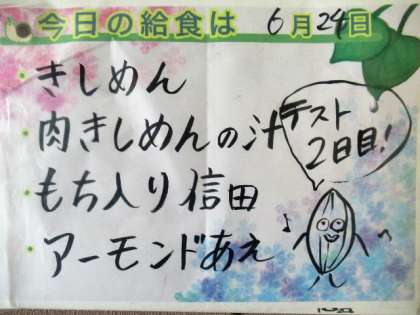 今日の給食は 6月24日
・きしめん
・肉きしめんの汁
・もち入り信田
・アーモンドあえ
テスト
2日目!